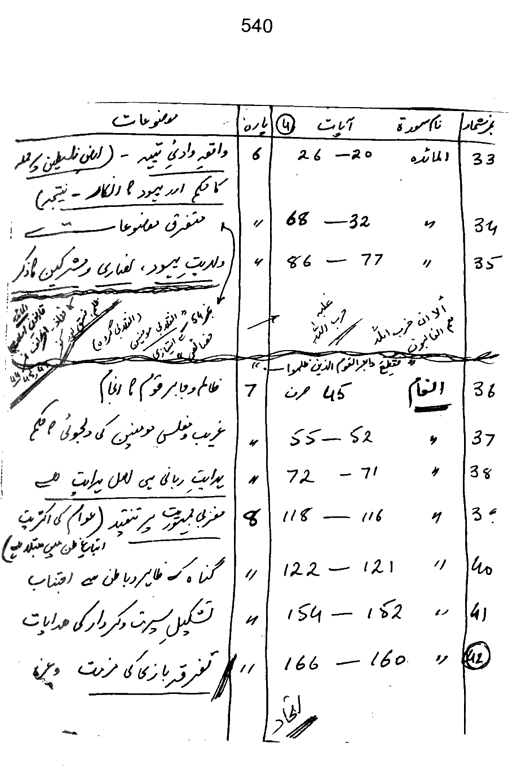 540
نمبر شمار نام سورۃ آیات (4) پارہ موضوعات
33 المائدہ 20—26 6 واقعہ وادیٔ تیہ - (ارض فلسطین پر حملہ
کا حکم اور یہود کا انکار - نتیجہ)
34 " 32—68 " متفرق موضوعات
35 " 77—86 " ولدیت یہود، نصاریٰ و مشرکین کا ذکر
الا ان حزب اللہ
ھم الغالبون
غلبہ
حزب اللہ
" انقلابی مومنین
(انقلابی گران)
فقطع دابر القوم الذین ظلموا
36 انعام 45 صرف 7 ظالم و جابر قوم کا انجام
37 " 52—55 " غریب و مفلس مومنین کی دلجوئی کا حکم
38 " 71—72 " ہدایت ربانی ہی اصل ہدایت ہے
39 " 116—118 8 مغربی جمہوریت پر تنقید (عوام کی اکثریت
اتباع ظن میں مبتلا ہے)
40 " 121—122 " گناہ کے ظاہر و باطن سے اجتناب
41 " 152—154 " تشکیل سیرت و کردار کی ہدایات
42 " 160—166 " تفرقہ بازی کی مذمت وغیرہ
اتحاد